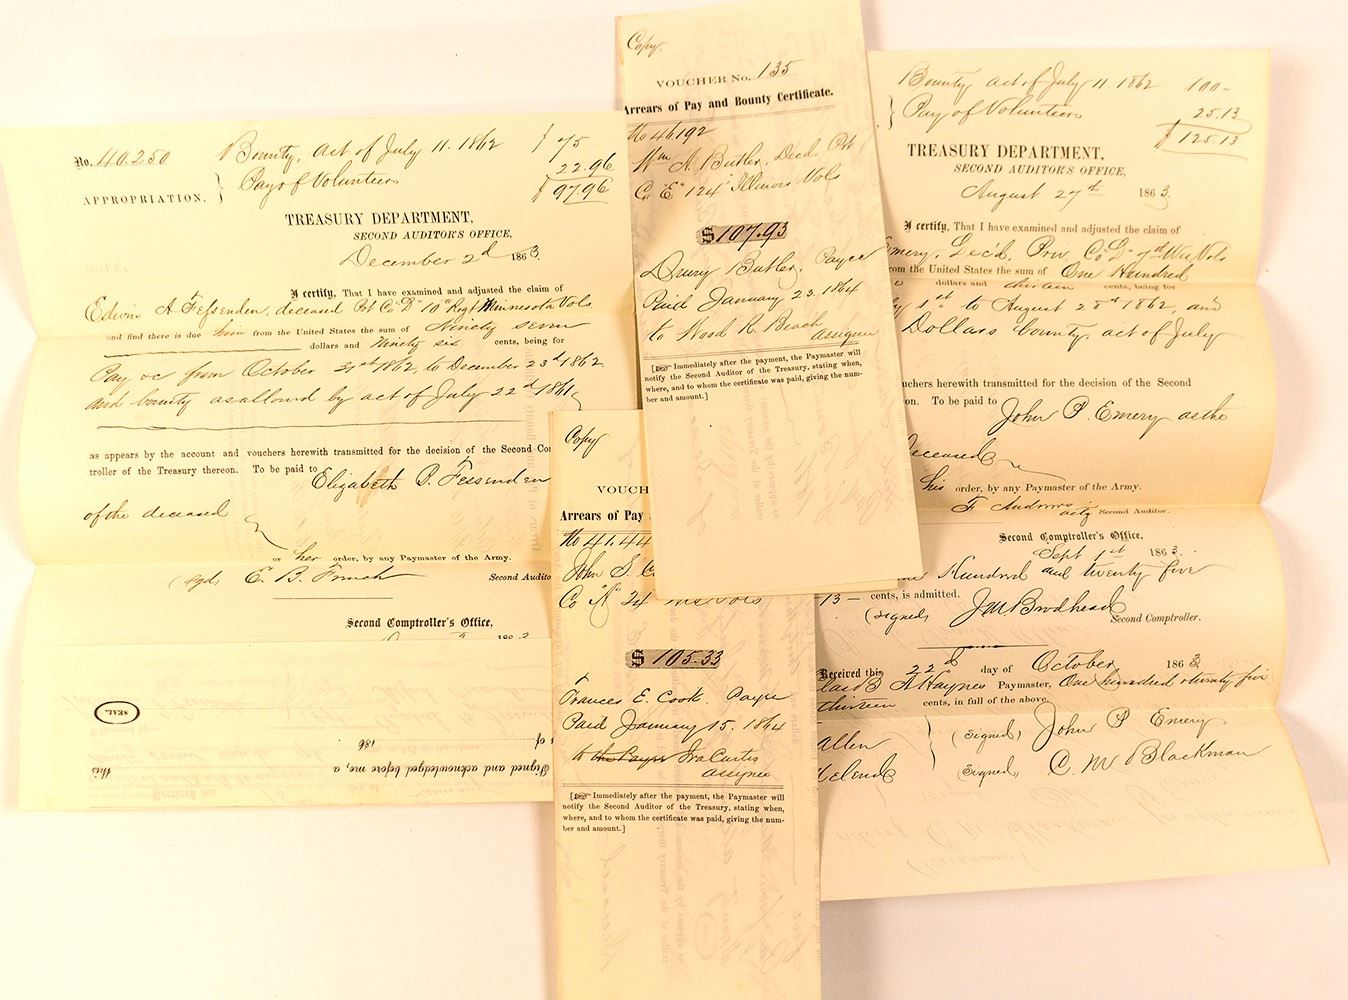 No. 40.250
Bounty, Act of July 11. 1862 $ 75
Pay of Volunteers 22.96
$ 97.96
APPROPRIATION,
TREASURY DEPARTMENT,
SECOND AUDITOR'S OFFICE,
December 2d 1863.
I certify, That I have examined and adjusted the claim of
Edwin A Fessenden, deceased Pvt Co "D" 10th Regt Minnesota Vols
and find there is due him from the United States the sum of Ninety seven
dollars and Ninety six cents, being for
Pay &c from October 21st 1862, to December 23d 1862.
and bounty as allowed by act of July 22d 1861,
as appears by the account and vouchers herewith transmitted for the decision of the Second Co
troller of the Treasury thereon. To be paid to Elizabeth P. Fessenden
of the deceased
or her order, by any Paymaster of the Army.
(sgd) E. B. French Second Audito
Second Comptroller's Office,
SEAL.
of s
186
Signed and acknowledged before me, a
this
Copy.
VOUCHER No. 135
Arrears of Pay and Bounty Certificate.
No 46192
Wm A. Butler, Decd. Pvt
Co "E" 124" Illinois Vols
$107.93
Drury Butler, Payee
Paid January 23. 1864
to Wood R. Beach
assignee
[☞ Immediately after the payment, the Paymaster will
notify the Second Auditor of the Treasury, stating when,
where, and to whom the certificate was paid, giving the num-
ber and amount.]
Copy
VOUCH
Arrears of Pay
No 41.44
John S. C
Co "A" 24 Vols
$ 105.33
Frances E. Cook. Payee
Paid January 15. 1864
to the Payee Ira Curtis
assignee
[☞ Immediately after the payment, the Paymaster will
notify the Second Auditor of the Treasury, stating when,
where, and to whom the certificate was paid, giving the num-
ber and amount.]
Bounty act of July 11. 1862 100-
Pay of Volunteers 25.13
$ 125.13
TREASURY DEPARTMENT,
SECOND AUDITOR'S OFFICE,
August 27th 1863.
I certify, That I have examined and adjusted the claim of
Emery, Dec'd, Priv Co "D" 7th Wis Vols
rom the United States the sum of One Hundred
dollars and thirteen cents, being for
1st to August 28th 1862, and
Dollars bounty, act of July
uchers herewith transmitted for the decision of the Second
on. To be paid to John P. Emery as the
deceased
his order, by any Paymaster of the Army.
T. Andrews actg Second Auditor.
Second Comptroller's Office,
Sept 1st 1863.
Hundred and twenty five
13 — cents, is admitted.
(signed) J M Brodhead Second Comptroller.
Received this 22d day of October 1863
A Haynes Paymaster, One hundred & twenty five
thirteen cents, in full of the above.
Allen (signed) John P Emery
(signed) C. M Blackman